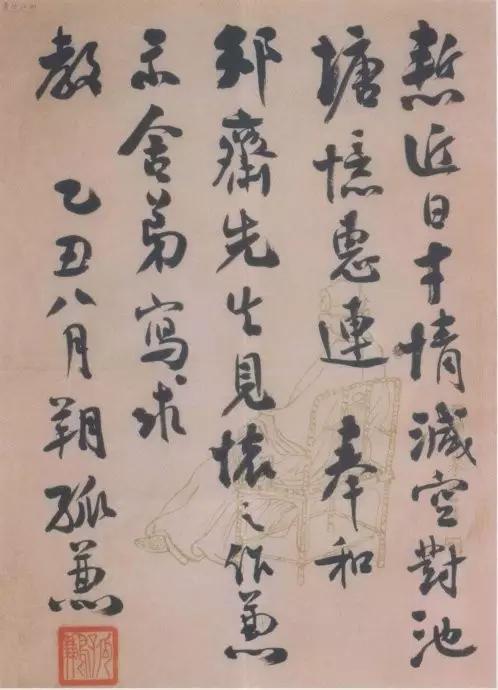 慙近日才情減空對池
塘憶惠連　奉和
齋先生見懷之作兼
示舍弟寫求
教　乙丑八月朔孤兼